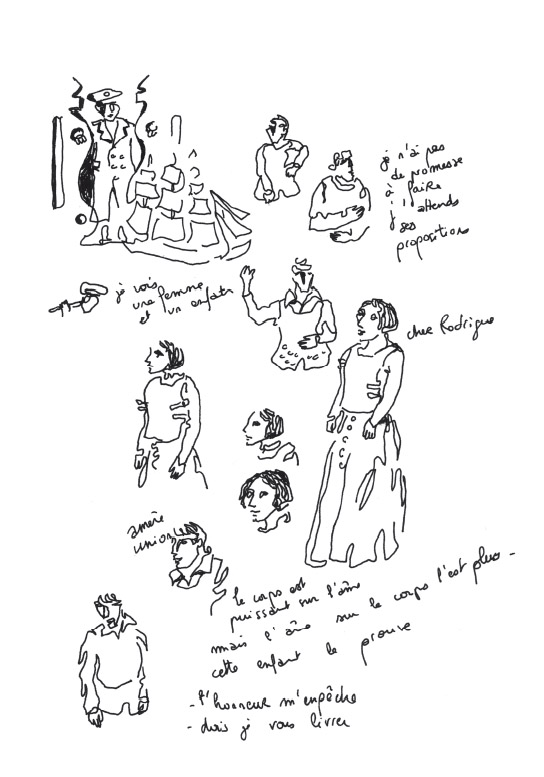 je n'ai pas
de promesse
à faire
j'attends
ses
propositions
je vois
une femme
et un enfant
cher Rodrigue
amère
union
le corps est
puissant sur l'âme
mais l'âme sur le corps l'est plus -
cette enfant le prouve
- l'honneur m'empêche
- dois je vous livrer